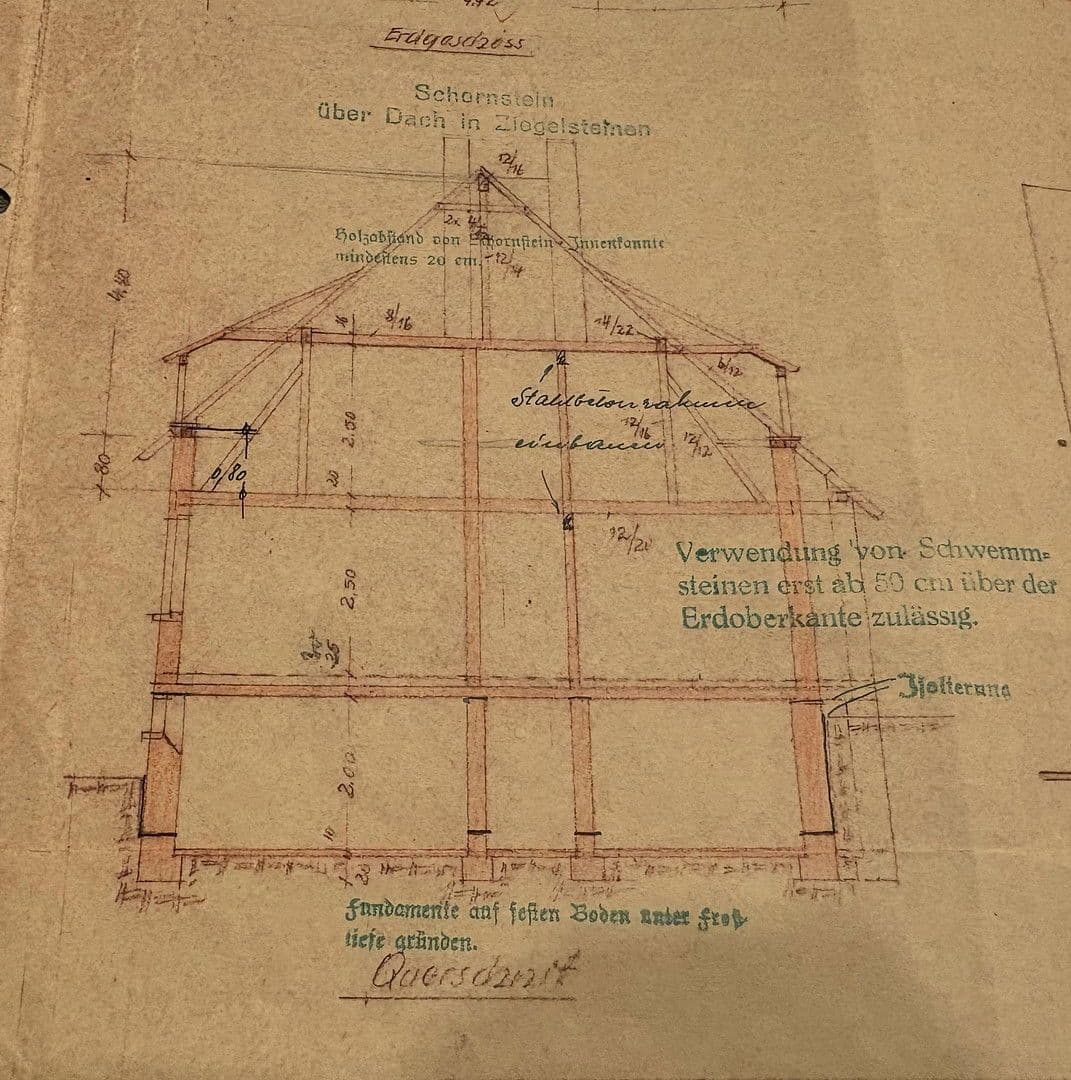 4.42
Erdgeschoss
Schornstein
über Dach in Ziegelsteinen
12/16
2x
Holzabstand von Schornstein-Innenkannte
mindestens 20 cm.
12/14
4.40
16
8/16
14/22
6/12
Stahlbetonrahmen
12/16
einbauen
12/12
2.50
80
0,80
20
12/20
Verwendung von Schwemm-
steinen erst ab 50 cm über der
Erdoberkante zulässig.
2.50
25
Isolierung
2.00
10
20
Fundamente auf festen Boden unter Frost-
tiefe gründen.
Querschnitt